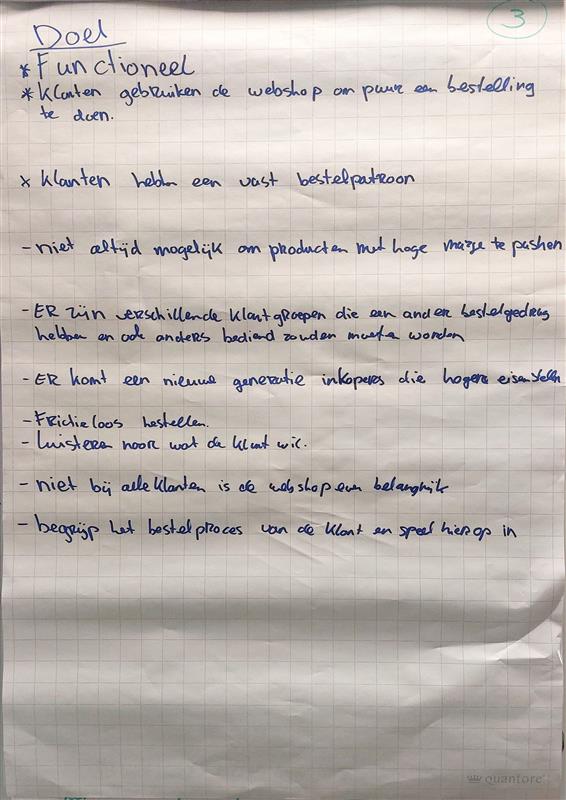 3
Doel
* Functioneel
* Klanten gebruiken de webshop om puur een bestelling
te doen.
x Klanten hebben een vast bestelpatroon
- niet altijd mogelijk om producten met hoge marge te pushen
- ER zijn verschillende klantgroepen die een ander bestelgedrag
hebben en ook anders bediend zouden moeten worden
- ER komt een nieuwe generatie inkopers die hogere eisen stellen
- Frictieloos bestellen.
- luisteren naar wat de klant wil.
- niet bij alle klanten is de webshop even belangrijk
- begrijp het bestelproces van de klant en speel hier op in
quantore